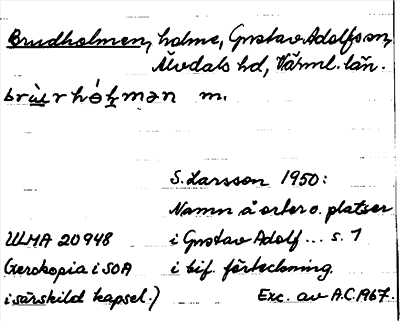 Brudholmen, holme, Gustav Adolfs sn,
Älvdals hd, Värml. län.
m.
S. Larsson 1950:
Namn å orter o. platser
ULMA 20948 i Gustav Adolf... s. 1
(Xerokopia i SOA i bif. förteckning.
i särskild kapsel.) Exc. av A.C. 1967.